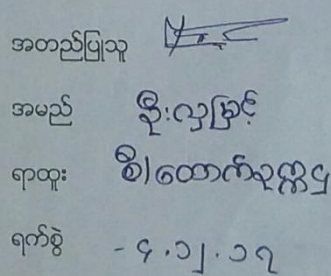 အတည်ပြုသူ
အမည် ဦးလှမြင့်
ရာထူး စီ/ထောက်ဥက္ကဌ
ရက်စွဲ - ၄.၁၂.၁၇